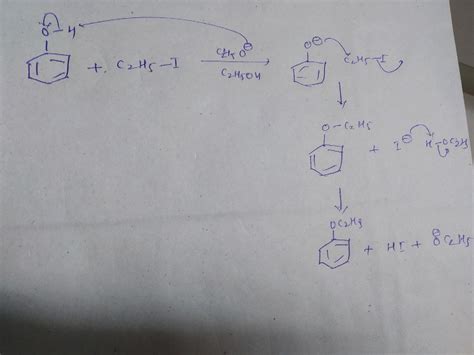 O-H
+ C2H5-I
C2H5O⊖
C2H5OH
O⊖ C2H5-I
O-C2H5
+ I⊖ H-OC2H5
OC2H5
+ HI + ⊖OC2H5